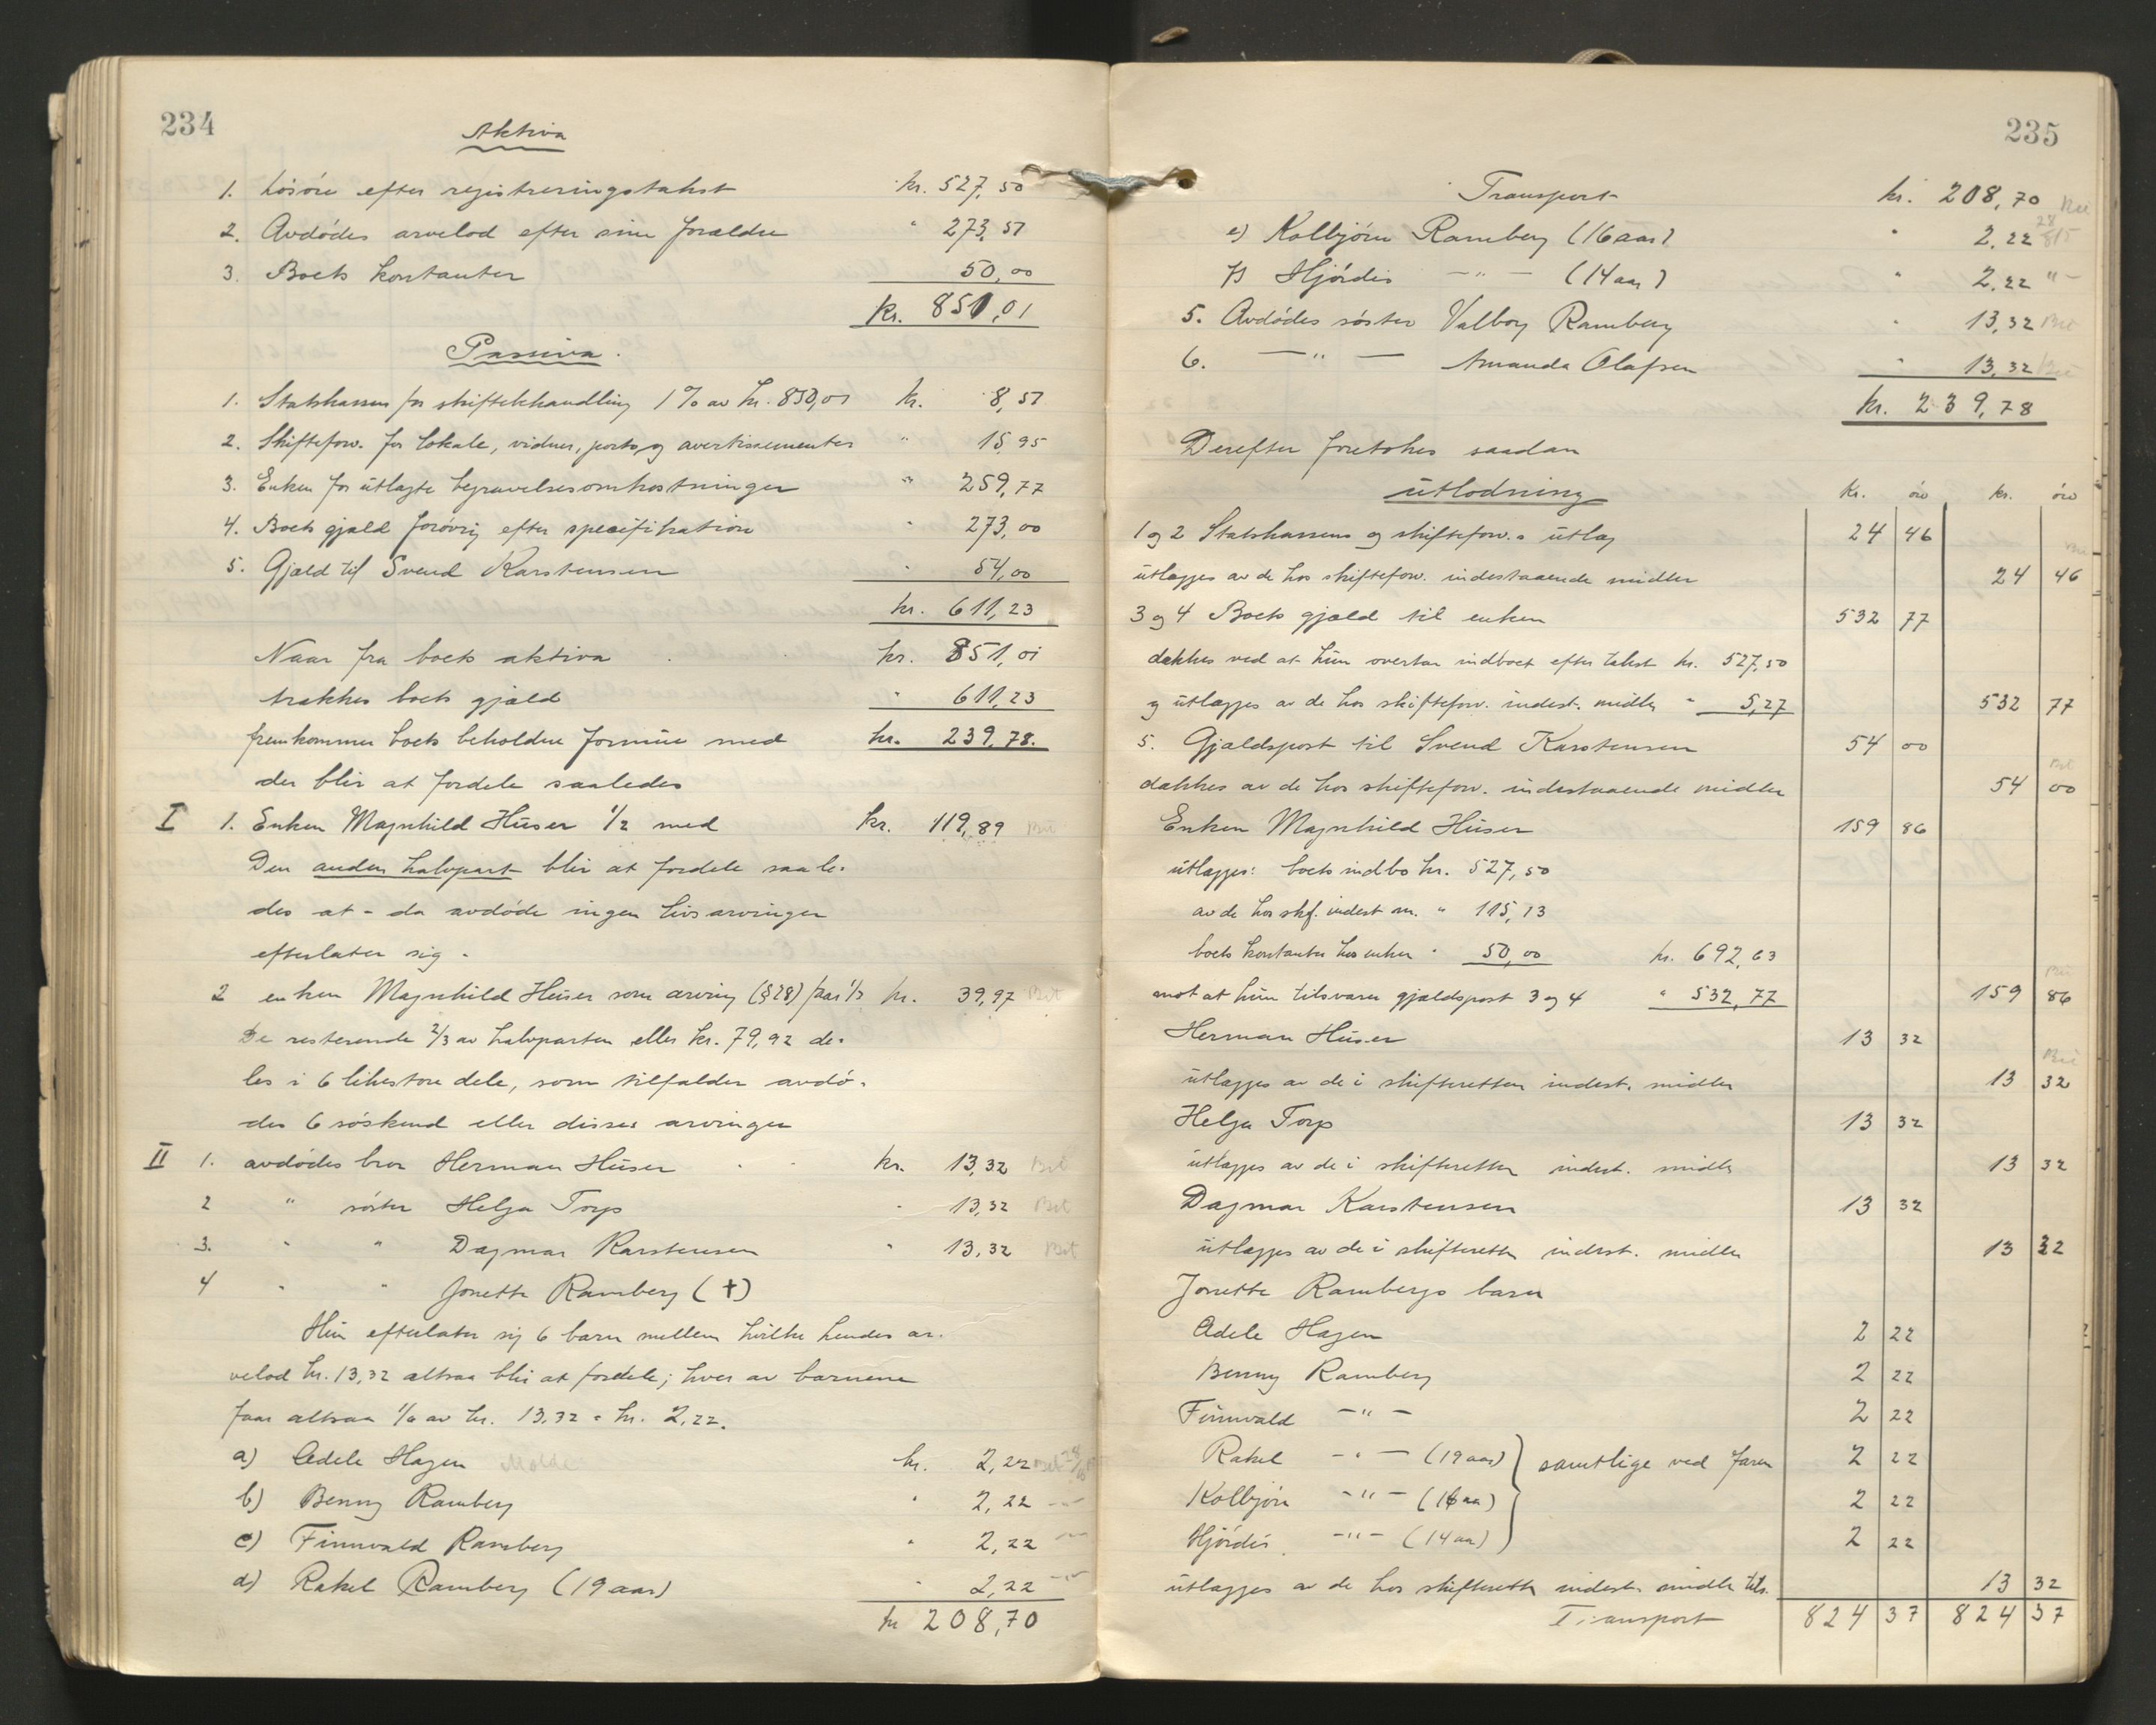 234
Aktiva
1. Lösöre efter registreringstakst kr. 527,50
2. Avdödes arvelod efter sine forældre " 273,51
3. Boets kontanter 50,00
kr. 851,01
Passiva.
1. Statskassen for skiftebehandling 1% av kr. 850,01 kr. 8,51
2. Skifteforv. for lokale, vidner, porto og avertissementer " 15,95
3. Enken for utlagte begravelsesomkostninger " 259,77
4. Boets gjæld forövrig efter specifikation " 273,00
5. Gjæld til Svend Karstensen " 54,00
kr. 611,23
Naar fra boets aktiva kr. 851,01
trækkes boets gjæld " 611,23
fremkommer boets beholdne formue med kr. 239,78.
der blir at fordele saaledes
I 1. Enken Magnhild Huser 1/2 med kr. 119,89 Bet
Den anden halvpart blir at fordele saale-
des at - da avdöde ingen livsarvinger
efterlater sig -
2 enken Magnhild Huser som arving (§28) faar 1/3 kr. 39,97 Bet
De resterende 2/3 av halvparten eller kr. 79,92 de-
les i 6 likestore dele, som tilfalder avdö-
des 6 söskend eller disses arvinger
II 1. avdödes bror Herman Huser kr. 13,32 Bet
2 " söster Helga Torp " 13,32 Bet
3. " " Dagmar Karstensen " 13,32 Bet
4 " " Jonette Ramberg (†)
Hun efterlater sig 6 barn mellem hvilke hendes ar-
velod kr. 13,32 altsaa blir at fordele; hver av barnene
faar altsaa 1/6 av kr. 13,32 = kr. 2,22.
a) Adele Hagen Molde kr. 2,22 Bet
b) Benny Ramberg " 2,22 —"—
c) Finnvald Ramberg " 2,22 —"—
d) Rakel Ramberg (19 aar) " 2,22 —"—
kr 208,70
235
Transport kr. 208,70
e) Kolbjörn Ramberg (16 aar) " 2,22
f) Hjördis —"— (14 aar) " 2,22 "—
5. Avdödes söster Valborg Ramberg " 13,32 Bet
6. —"— Amanda Olafsen " 13,32 Bet
kr. 239,78
Derefter foretokes saadan
utlodning kr. öre kr. öre
1 og 2 Statskassens og skifteforv.s utlæg 24 46
utlægges av de hos skifteforv. indestaaende midler 24 46
3 og 4 Boets gjæld til enken 532 77
dækkes ved at hun overtar indboet efter takst kr. 527,50
og utlægges av de hos skifteforv. indest. midler " 5,27 532 77
5. Gjældspost til Svend Karstensen 54 00
dækkes av de hos skifteforv. indestaaende midler 54 00
Enken Magnhild Huser 159 86
utlægges: boets indbo kr. 527,50
av de hos skf. indest m. " 115,13
boets kontanter hos enken " 50,00 kr. 692,63
mot at hun tilsvarer gjældspost 3 og 4 " 532,77 159 86
Herman Huser 13 32
utlægges av de i skifteretten indest. midler 13 32
Helga Torp 13 32
utlægges av de i skifteretten indest. midler 13 32
Dagmar Karstensen 13 32
utlægges av de i skifteretten indest. midler 13 32
Jonette Rambergs barn
Adele Hagen 2 22
Benny Ramberg 2 22
Finnvald —"— 2 22
Rakel —"— (19 aar) samtlige ved faren 2 22
Kolbjörn —"— (16 aar) 2 22
Hjördis —"— (14 aar) 2 22
utlægges av de hos skifteretten indest. midler tils. 13 32
Transport 824 37 824 37